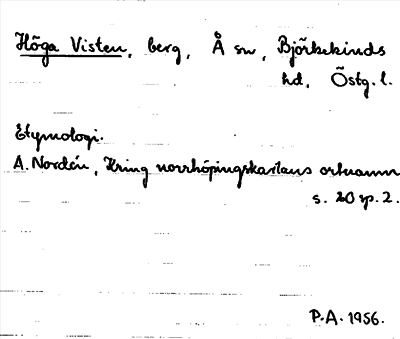 Höga Visten, berg, Å sn, Björkekinds
hd, Östg. l.
Etymologi.
A. Nordén, Kring norrköpingskartans ortnamn
s. 20 sp. 2.
P.A. 1956.